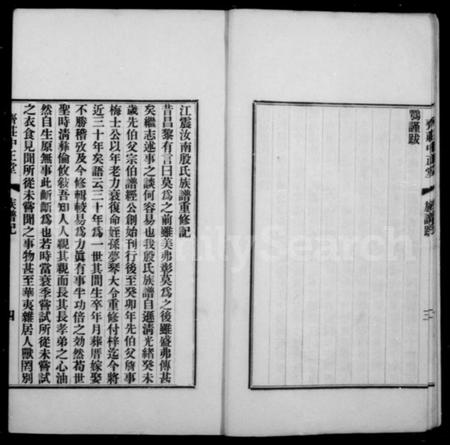 鶚謹跋
江震汝南殷氏族譜重修記
昔昌黎有言曰莫爲之前雖美弗彰莫爲之後雖盛弗傳甚
矣繼志述事之談何容易也我殷氏族譜自遜清光緒癸未
歲先伯父宗伯譜經公創始刊行後至癸卯年先伯父詹事
梅士公以年老力衰復命姪孫夢琴大令重修付梓迄今將
近三十年矣語云三十年爲一世其間生卒年月葬厝嫁娶
不勝稽攷及今修輯較易爲力眞有事半功倍之効然苟世
聖時淸彝倫攸敍吾知人人親其親而長其長孝弟之心油
然自生原無事此齗齗爲也若時當衰季嘗試所從未嘗試
之衣食見聞所從未嘗聞之事物甚至華夷雜居人獸罔別
齊莊中正堂 族譜記 四
齊莊中正堂 族譜跋 三
FamilySearch